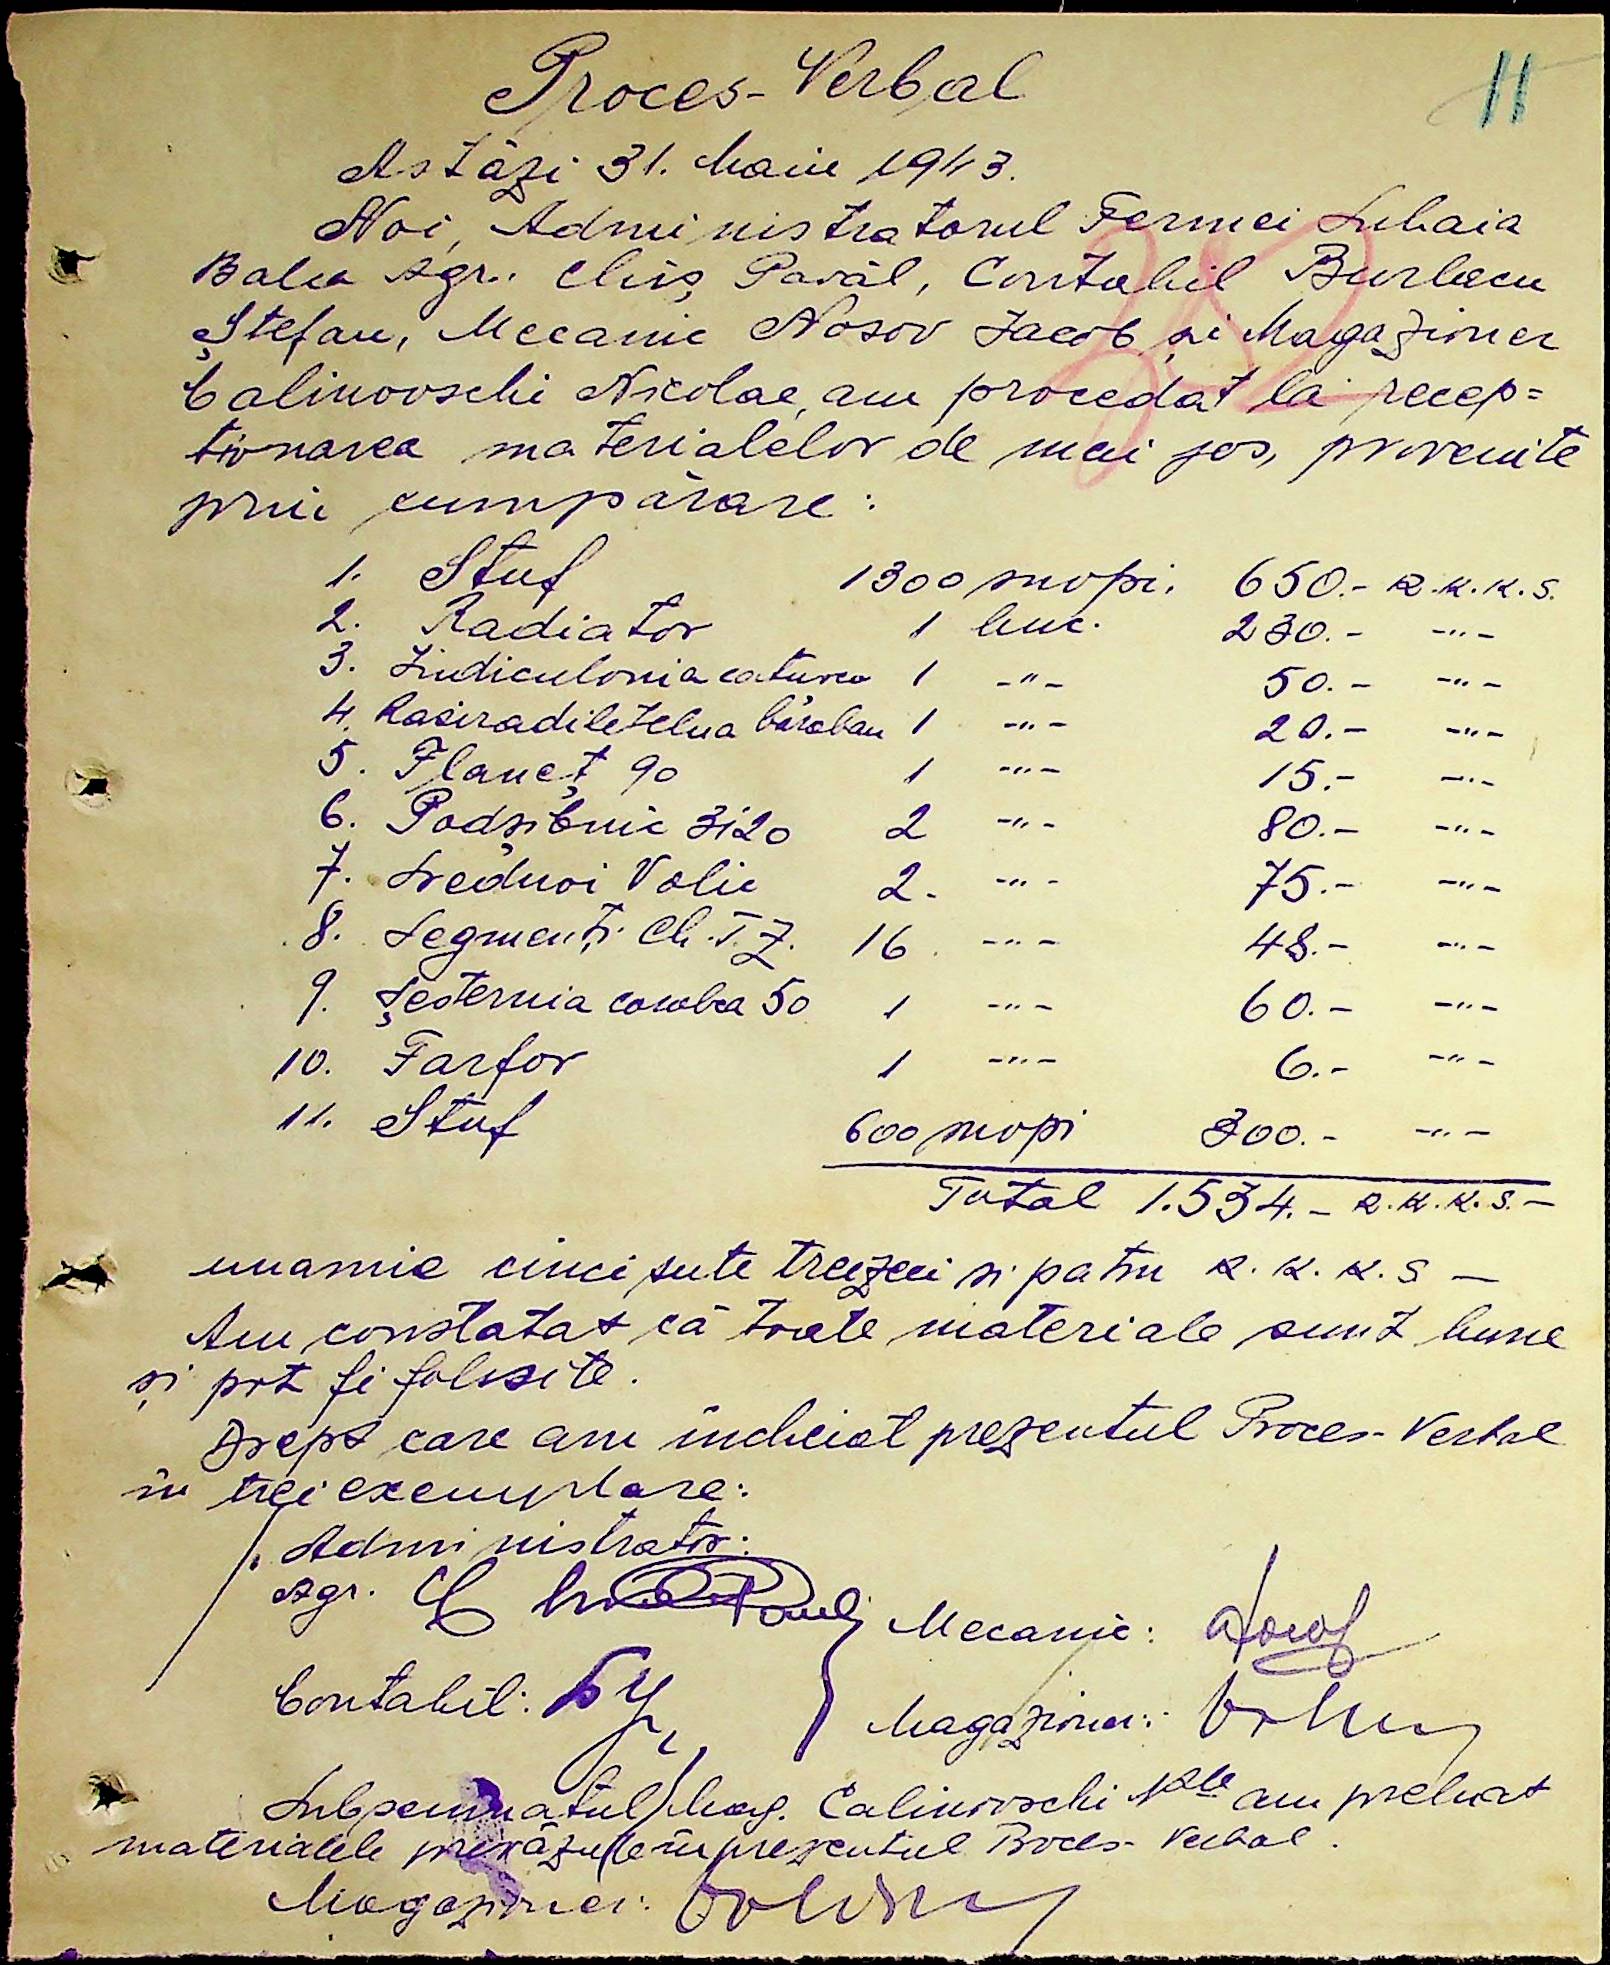 11
Proces-Verbal
Astăzi 31. Maiu 1943.
Noi, Administratorul Fermei Suhaia
Balca Agr. Chiș Pavăl, Contabil Burlacu
Ștefan, Mecanic Nosov Iacob și Magazioner
Calinovschi Nicolae, am procedat la recep=
ționarea materialelor de mai jos, provenite
prin cumpărare:
1. Stuf 1300 snopi. 650.- R.K.K.S.
2. Radiator 1 buc. 230.- -"-
3. 1 -"- 50.- -"-
4. 1 -"- 20.- -"-
5. Flaneț 90 1 -"- 15.- -"-
6. Podșibnic 3120 2 -"- 80.- -"-
7. Srednoi Valic 2. -"- 75.- -"-
8. Segmenți Ch.T.Z. 16. -"- 48.- -"-
9. Șesternia coroba 50 1 -"- 60.- -"-
10. Farfor 1 -"- 6.- -"-
11. Stuf 600 snopi 300.- -"-
Total 1.534.- R.K.K.S.-
unamie cinci sute treizeci și patru R.K.K.S -
Am constatat că toate materiale sunt bune
și pot fi folosite.
Drept care am încheiat prezentul Proces-Verbal
în trei exemplare:
Administrator:
Agr.
Mecanic:
Contabil:
Magazioner:
Subsemnatul Mag. Calinovschi Nlae am preluat
materialele prevăzute în prezentul Proces-Verbal.
Magazioner: